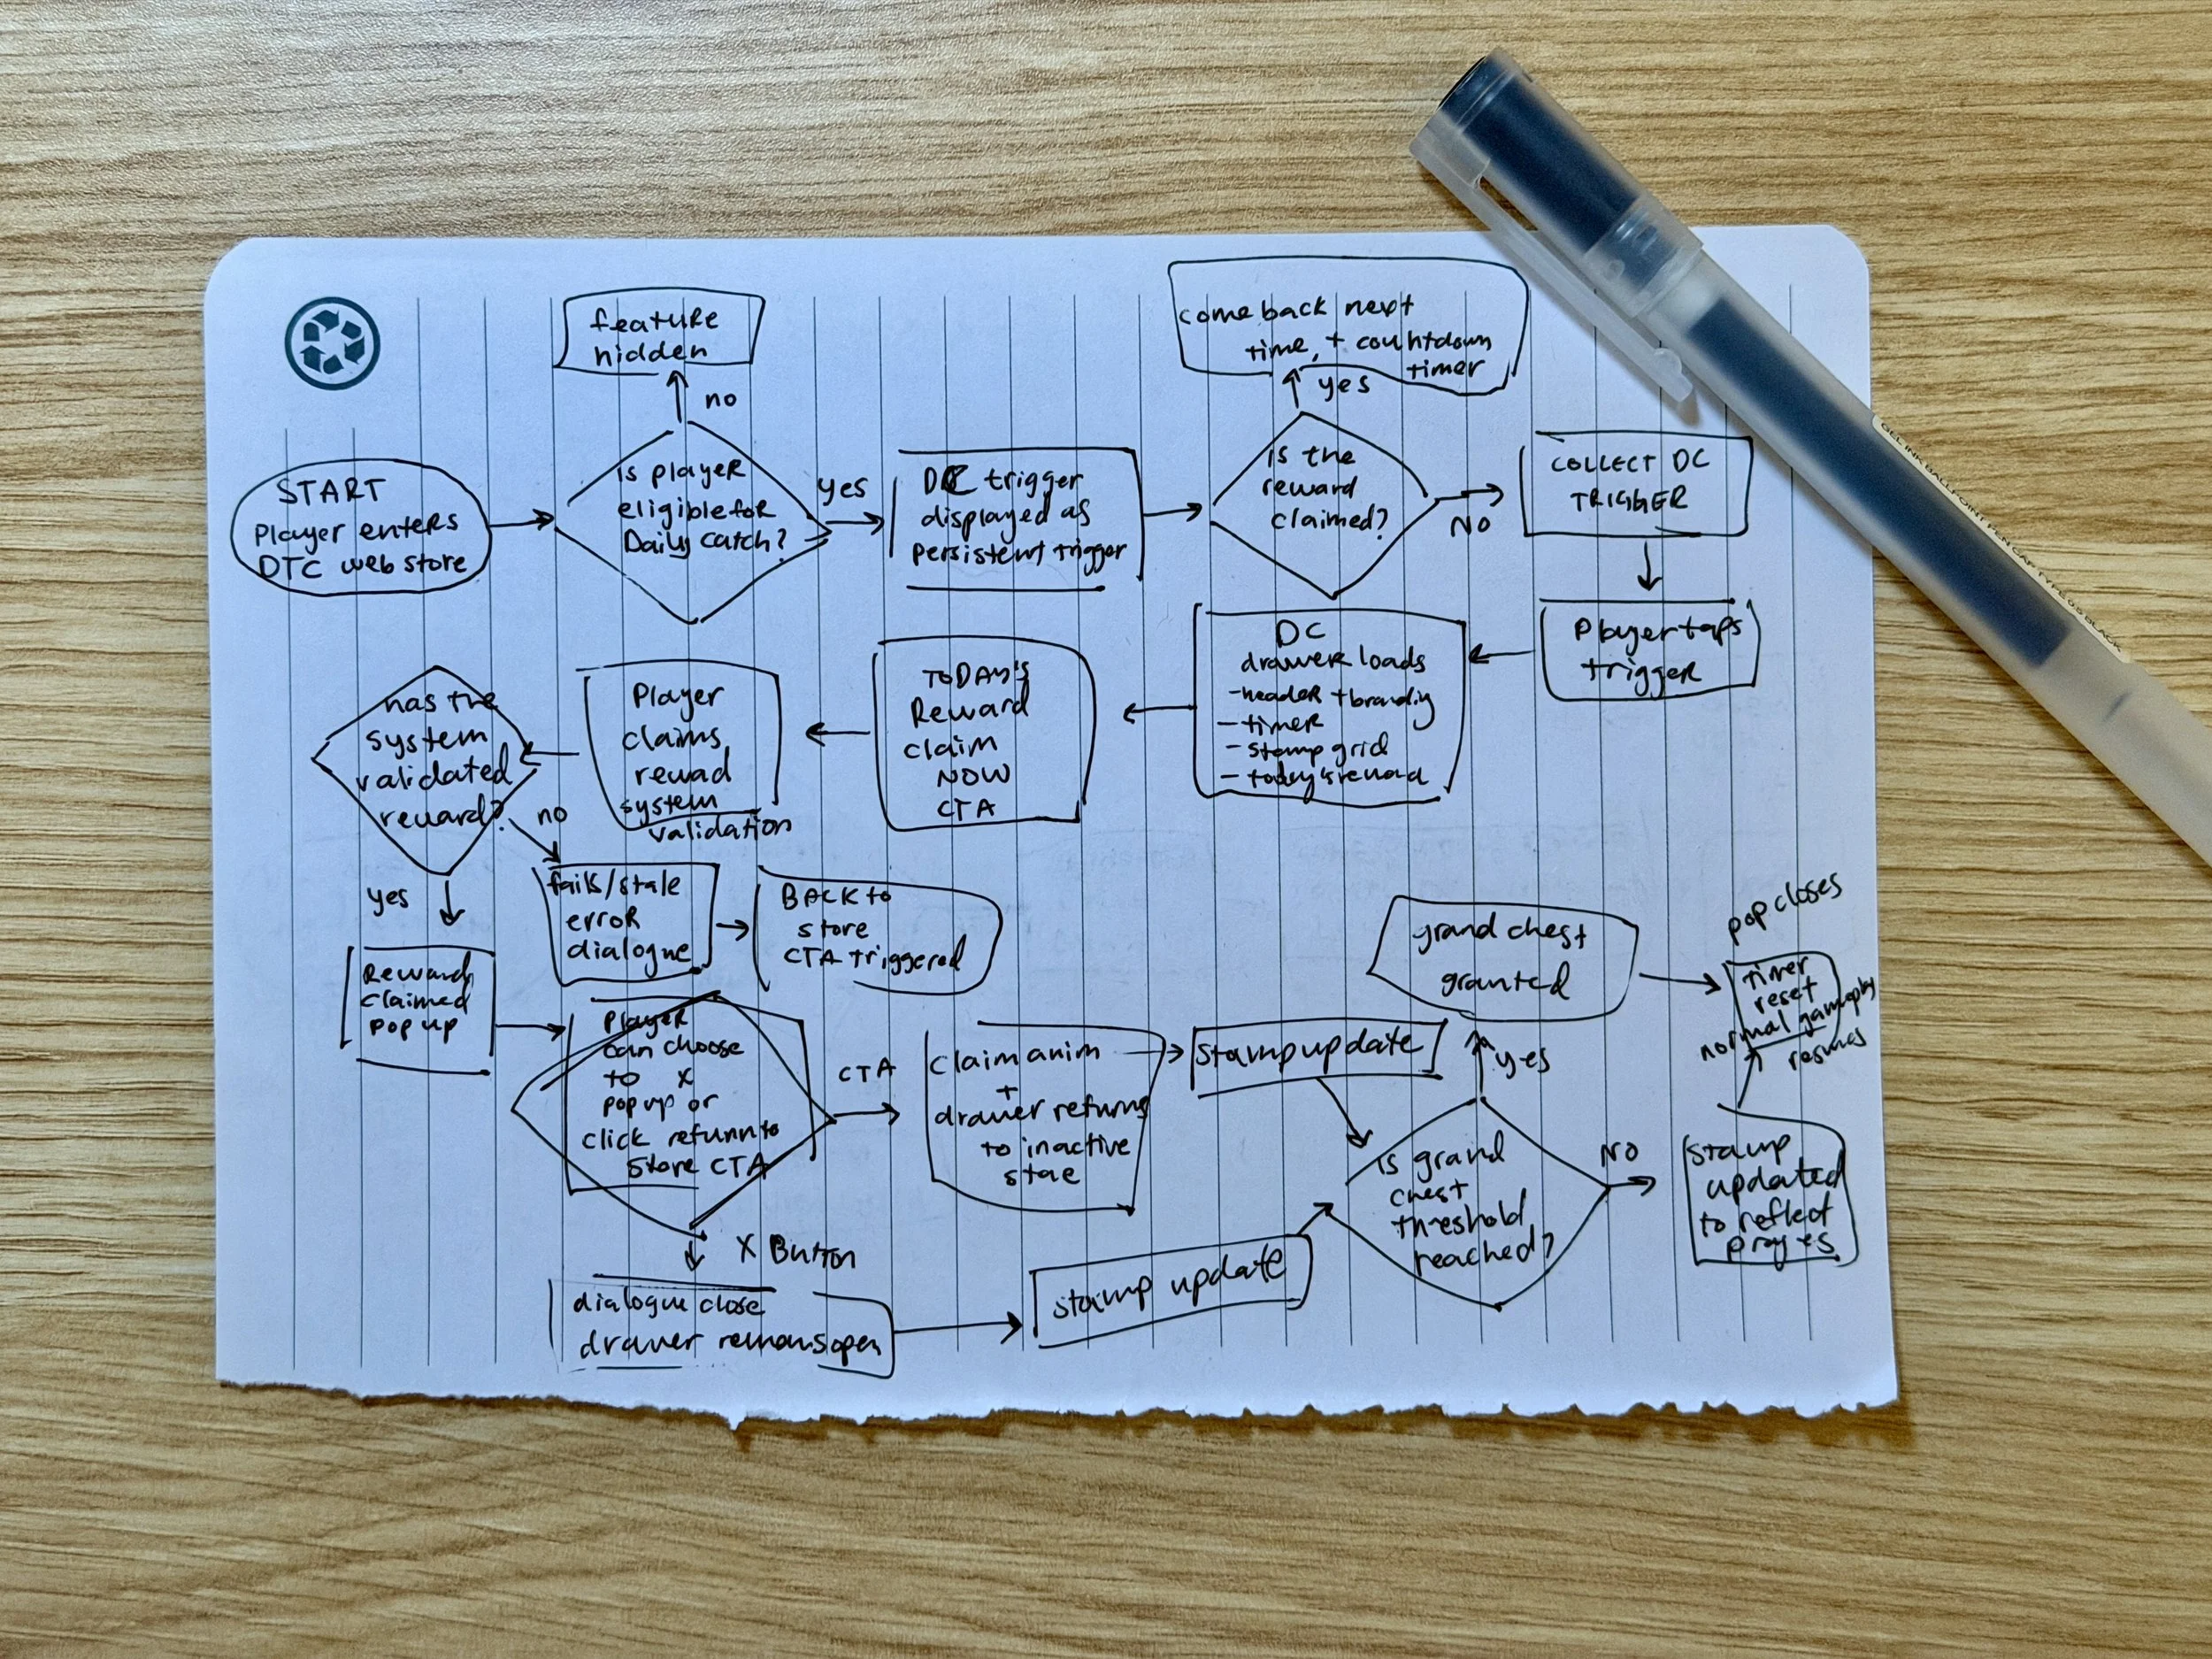 feature
hidden
no
come back next
time, + countdown
timer
yes
START
Player enters
DTC web store
is player
eligible for
Daily catch?
yes
DC trigger
displayed as
persistent trigger
is the
reward
claimed?
NO
COLLECT DC
TRIGGER
Player taps
trigger
DC
drawer loads
- header + brandig
- timer
- stamp grid
- today's reward
TODAY'S
Reward
claim
NOW
CTA
Player
claims
rewad
system
validation
has the
system
validated
reward?
no
yes
fails/stale
error
dialogue
BACK to
store
CTA triggered
Reward
claimed
pop up
Player
can choose
to x
pop up or
click return to
store CTA
CTA
claim anim
+
drawer returns
to inactive
stae
stamp update
X Button
dialogue close
drawer remains open
stamp update
is grand
chest
threshold
reached?
yes
grand chest
granted
NO
stamp
updated
to reflect
progres
pop closes
timer
reset
normal gameplay
resumes
GEL INK BALLPOINT PEN CAP TYPE 0.5 BLACK